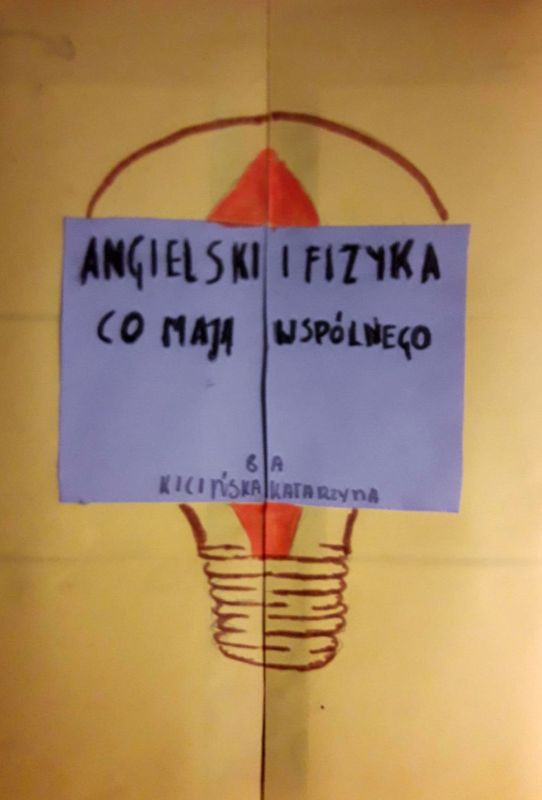 ANGIELSKI I FIZYKA
CO MAJĄ WSPÓLNEGO
6 A
KICIŃSKA KATARZYNA